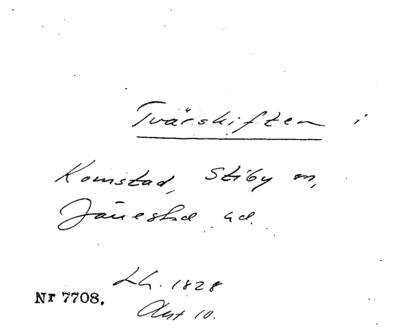 Tvärskiften i
Komstad, Stiby m,
Järrestad hd.
Lh. 1828
Nr 7708.
10.